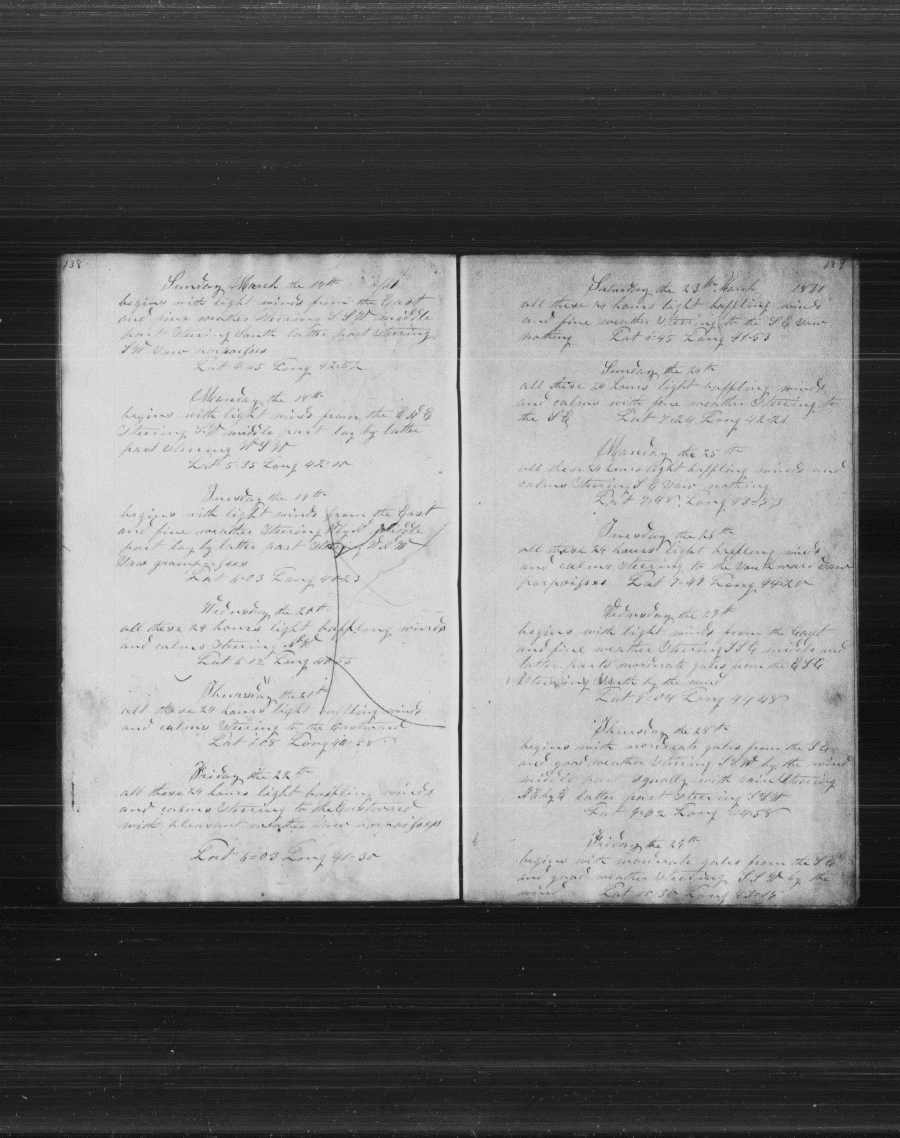 138
Sunday March the 17th
begins with light winds from the East
and fine weather Steering S S W middle
part Steering South latter part Steering
S W Saw porpoises
Lat 4-45 Long 42-52
Monday the 18th
begins with light winds from the E N E
Steering S W middle part lay by latter
part Steering W S W
Lat 5-35 Long 42-10
Tuesday the 19th
begins with light winds from the East
and fine weather Steering middle
part lay by latter part Steering W S W
Saw grampusses
Lat 6-03 Long 41-23
Wednsday the 20th
all these 24 hours light baffling winds
and calms Steering
Lat Long
Thursday the 21st
all these 24 hours light baffling winds
and calms Steering to the Eastward
Lat Long 40-58
Friday the 22th
all these 24 hours light baffling winds
and calms Steering to the Eastward
with pleasant weather Saw porpoises
Lat 6-03 Long 41-30
139
Saturday the 23th March 1871
all these 24 hours light baffling winds
and fine weather Steering to the S E Saw
nothing Lat 6-45 Long 41-53
Sunday the 24th
all these 24 hours light baffling winds
and calms with fine weather Steering to
the S E Lat 7-24 Long 42-21
Monday the 25th
all these 24 hours light baffling winds and
calms Steering S E Saw nothing
Lat 7-48 Long 43-53
Tuesday the 26th
all these 24 hours light baffling winds
and calms Steering to the Southward Saw
porpoises Lat 7-48 Long 44-20
Wednesday the 27th
begins with light winds from the East
and fine weather Steering S S E middle and
latter parts moderate gales from the E S E
Steering South by the wind
Lat Long 44-48
Thursday the 28th
begins with moderate gales from the S E
and good weather Steering S S W by the wind
middle part squally with rain Steering
N E by E latter part Steering S S W
Lat 9-02 Long 44-58
Friday the 29th
begins with moderate gales from the S E
and good weather Steering S S W by the
wind Lat 10-30 Long 45-15